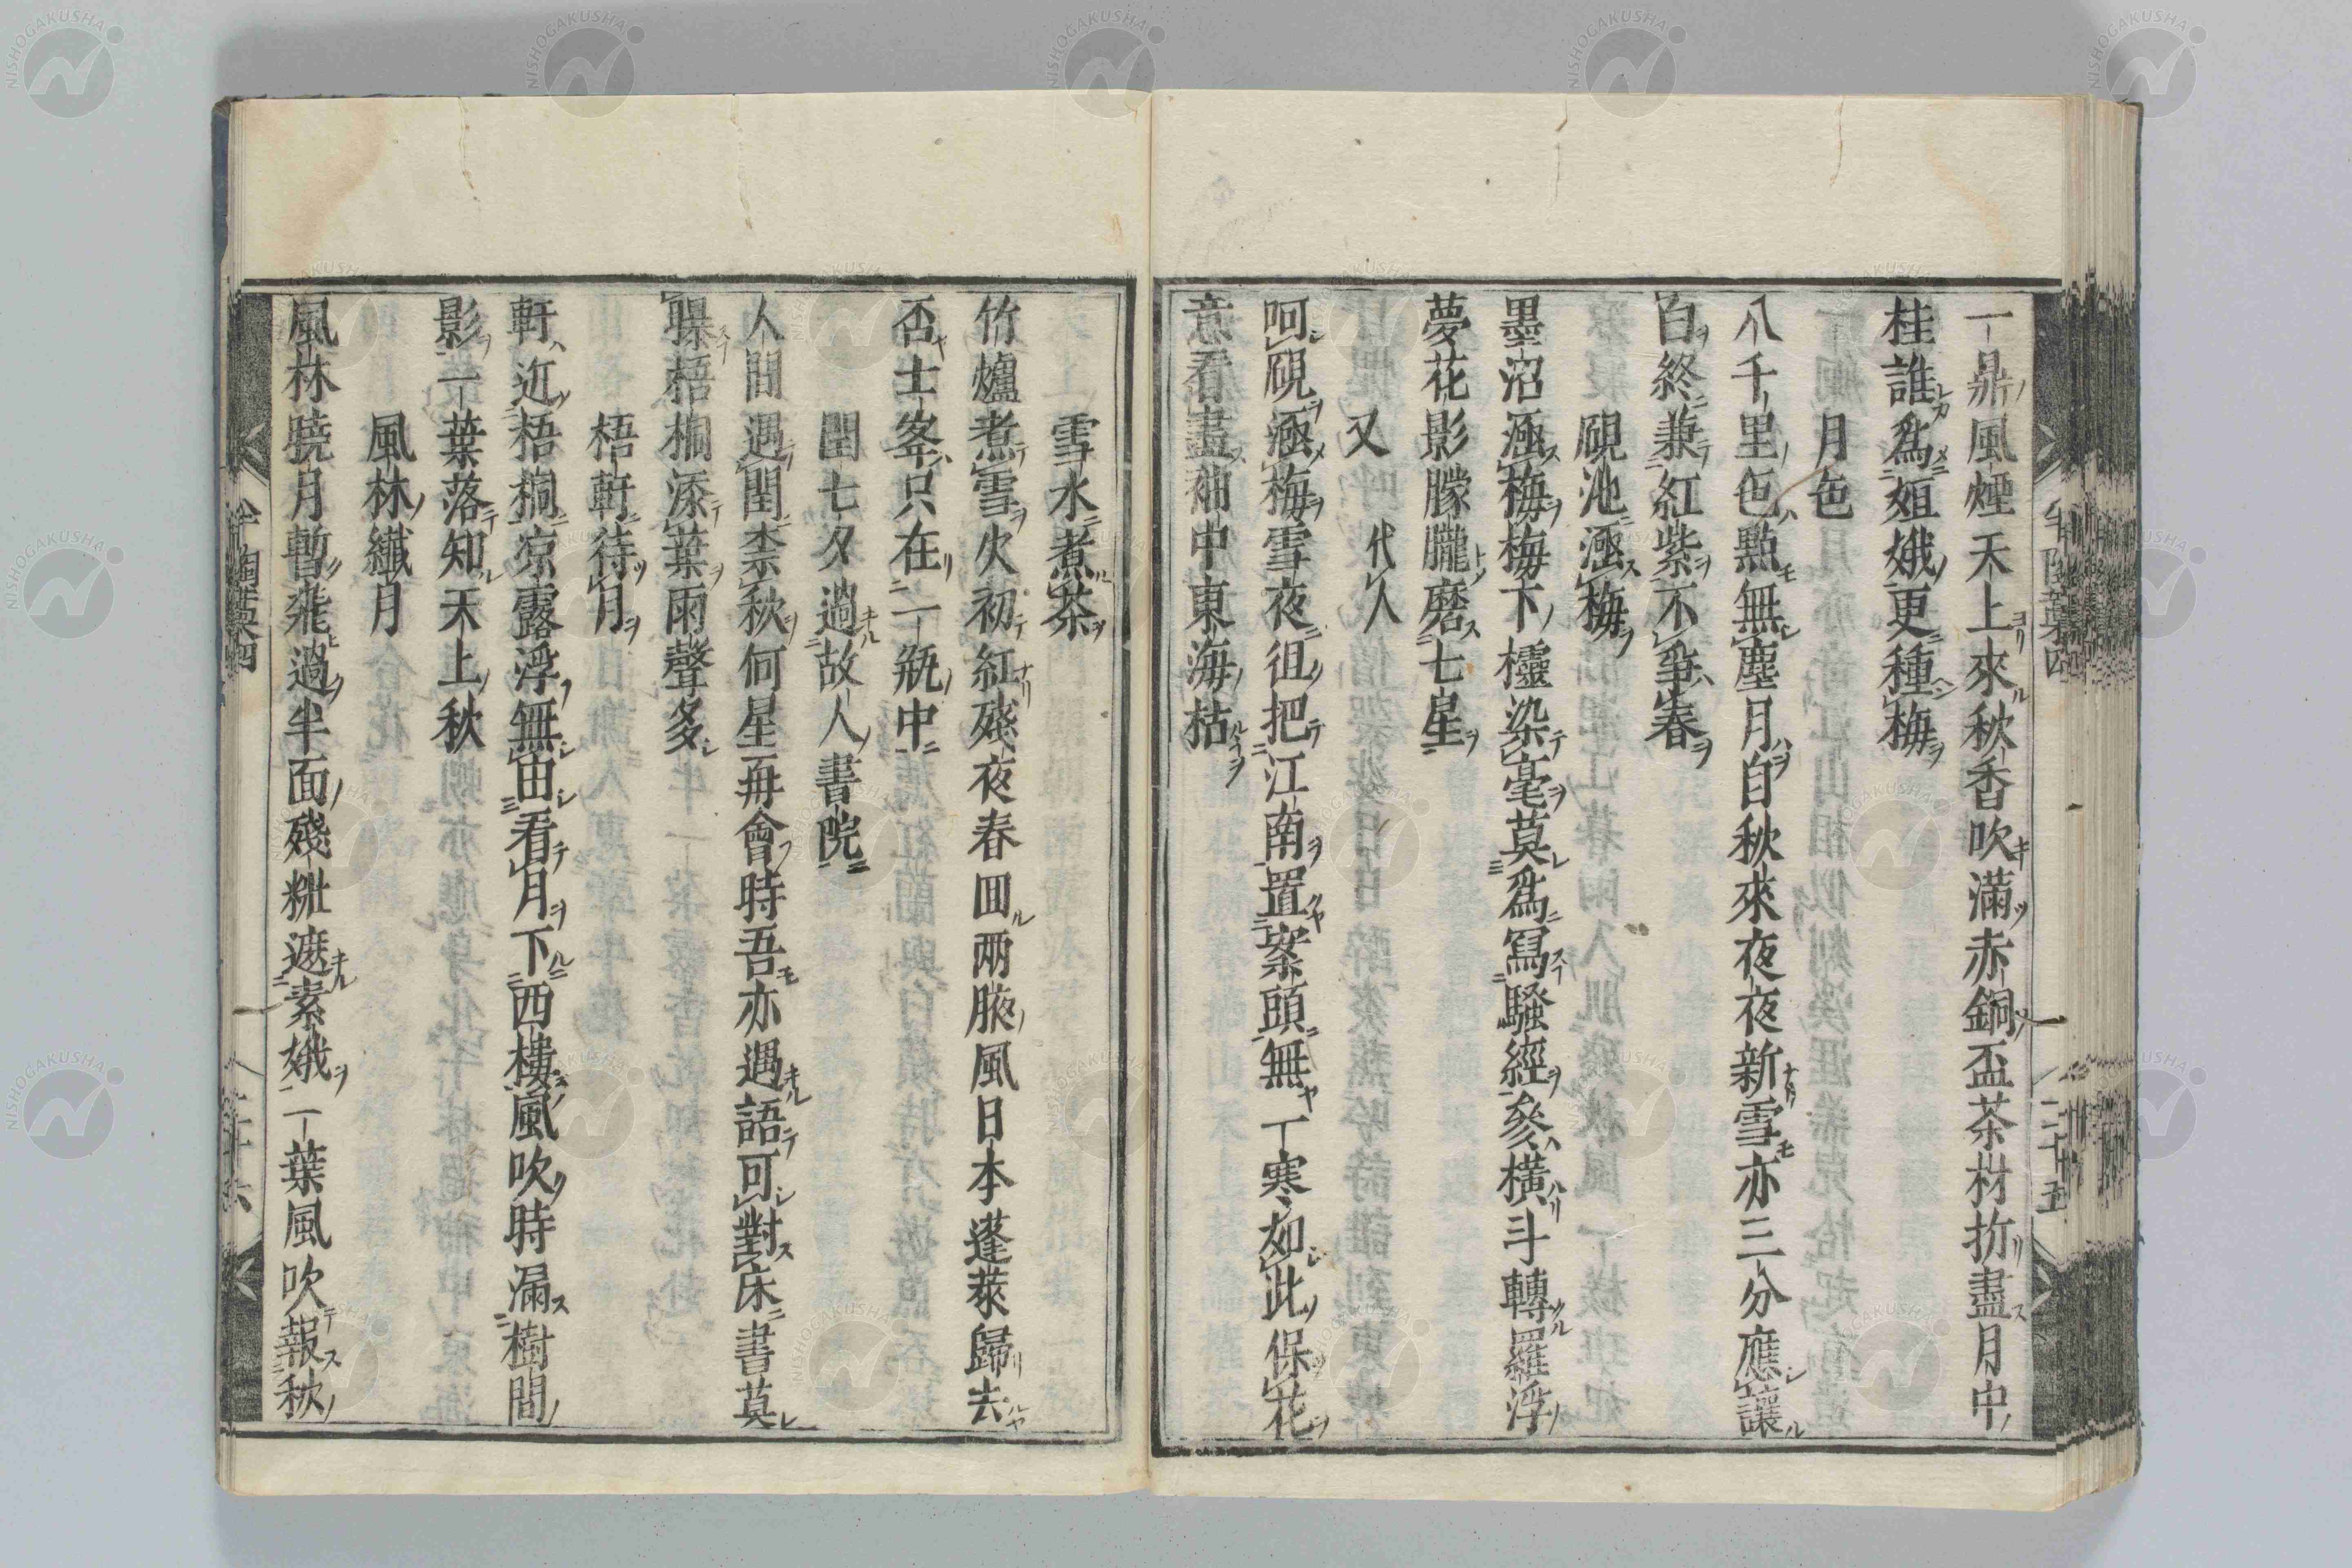 一鼎風煙天上來秋香吹滿赤銅盃茶材折盡月中
桂誰爲姮娥更種梅
月色
八千里色點無塵月自秋來夜夜新雪亦三分應讓
白終兼紅紫不爭春
硯池浸梅
墨沼浸梅梅下櫺染毫莫爲寫騷經參橫斗轉羅浮
夢花影朦朧磨七星
又 代人
呵硯浸梅雪夜徂把江南置案頭無一寒如此保花
意看盡袖中東海枯
半陶藁四
三十五
雪水煮茶
竹爐煮雪火初紅殘夜春回兩腋風日本蓬萊歸去
否士峯只在一瓶中
閏七夕過故人書院
人間遇閏柰秋何星再會時吾亦過語可對床書莫
曝梧桐添葉雨聲多
梧軒待月
軒近梧桐凉露浮無由看月下西樓風吹時漏樹間
影一葉落知天上秋
風林纖月
風林曉月暫飛過半面殘粧遮素娥一葉風吹報秋
半陶藁四
三十六
NISHOGAKUSHA